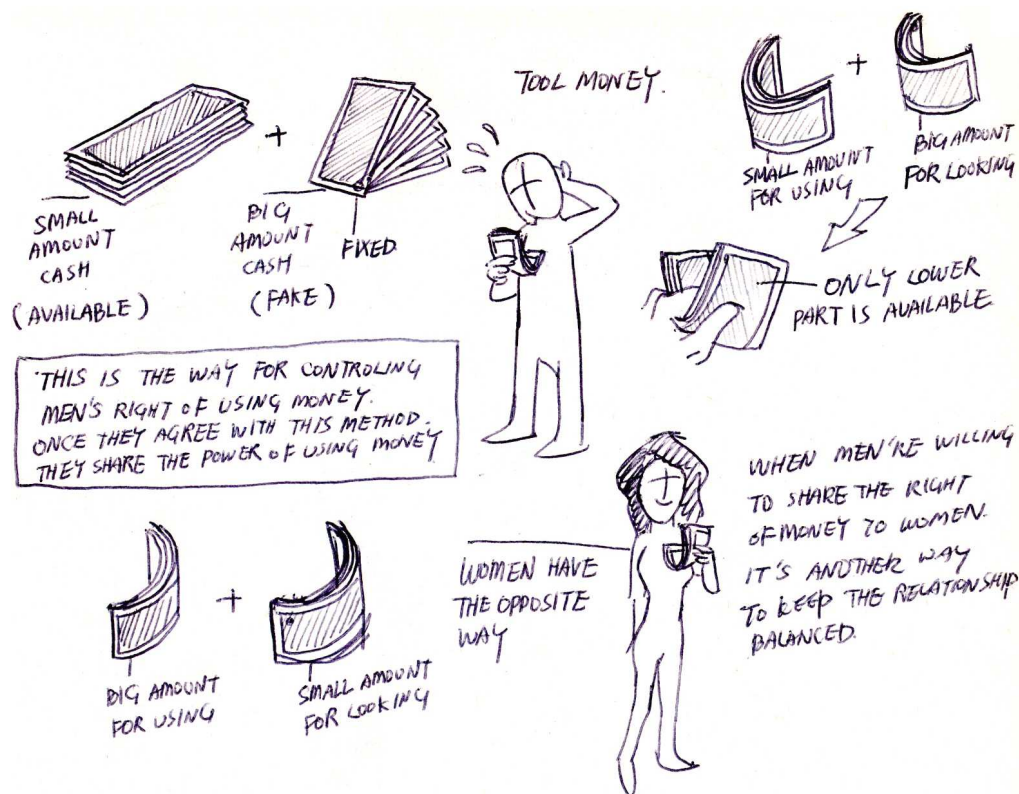 TOOL MONEY.
SMALL
AMOUNT
CASH
(AVAILABLE)
+
BIG
AMOUNT
CASH
(FAKE)
FIXED
SMALL AMOUNT
FOR USING
+
BIG AMOUNT
FOR LOOKING
ONLY LOWER
PART IS AVAILABLE.
THIS IS THE WAY FOR CONTROLING
MEN'S RIGHT OF USING MONEY.
ONCE THEY AGREE WITH THIS METHOD.
THEY SHARE THE POWER OF USING MONEY
BIG AMOUNT
FOR USING
+
SMALL AMOUNT
FOR LOOKING
WOMEN HAVE
THE OPPOSITE
WAY
WHEN MEN'RE WILLING
TO SHARE THE RIGHT
OF MONEY TO WOMEN.
IT'S ANOTHER WAY
TO KEEP THE RELATIONSHIP
BALANCED.